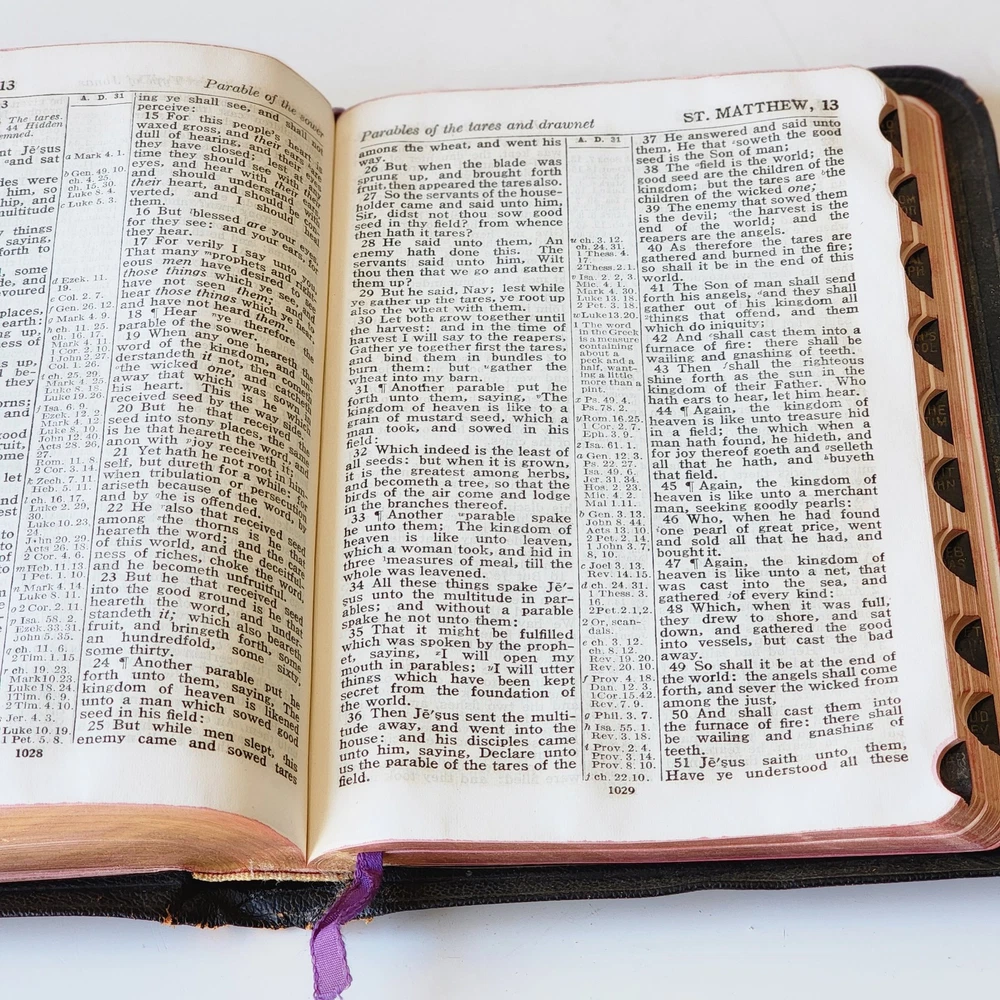 13
Parable of the sower
The tares.
44 Hidden
nt Jē'ṣus
"and sat
les were
him, so
hip, and
multitude
y things
saying,
forth to
, some
de, and
evoured
places,
earth:
ng up,
ness of
as up,
be-
they
orns:
and
good
ruit,
ome
let
A. D. 31
a Mark 4. 1.
b Gen. 49. 10.
ch. 4. 25.
ch. 15. 30.
Luke 8. 4.
c Luke 5. 3.
d Ezek. 11.
19.
e Col. 2. 7.
f Gen. 26. 12.
g Mark 4. 9.
h ch. 11. 25.
ch. 16. 17.
Mark 4. 11.
1 Cor. 2. 10.
1 John 2. 27.
Col. 1. 26.
i ch. 25. 29.
Mark 4. 25.
Luke 8. 18.
Luke 19. 26.
j Isa. 6. 9.
Ezek. 12. 2.
Mark 4. 12.
Luke 8. 10.
John 12. 40.
Acts 28. 26,
27.
Rom. 11. 8.
2 Cor. 3. 14.
k Zech. 7. 11.
Heb. 5. 11.
l ch. 16. 17.
Luke 2. 29,
30.
Luke 10. 23,
24.
John 20. 29.
Acts 26. 18.
2 Cor. 4. 6.
m Heb. 11. 13.
1 Pet. 1. 10.
n Mark 4. 14.
Luke 8. 11.
o 2 Cor. 2. 11.
p Isa. 58. 2.
Ezek. 33. 31.
John 5. 35.
q ch. 11. 6.
2 Tim. 1. 15.
r ch. 19. 23.
Mark 10. 23.
Luke 18. 24.
1 Tim. 6. 9.
2 Tim. 4. 10.
s Jer. 4. 3.
t Luke 10. 19.
1 Pet. 5. 8.
ing ye shall see, and shall not
perceive:
15 For this people's heart is
waxed gross, and their ears are
dull of hearing, and their eyes
they have closed; lest at any
time they should see with their
eyes, and hear with their ears,
and should understand with
their heart, and should be con-
verted, and I should heal
them.
16 But blessed are your eyes,
for they see: and your ears, for
they hear.
17 For verily I say unto you,
That many prophets and right-
eous men have desired to see
those things which ye see, and
have not seen them; and to
hear those things which ye hear,
and have not heard them.
18 ¶ Hear ye therefore the
parable of the sower.
19 When any one heareth the
word of the kingdom, and un-
derstandeth it not, then cometh
the wicked one, and catcheth
away that which was sown in
his heart. This is he which
received seed by the way side.
20 But he that received the
seed into stony places, the same
is he that heareth the word, and
anon with joy receiveth it;
21 Yet hath he not root in him-
self, but dureth for a while: for
when tribulation or persecution
ariseth because of the word, by
and by he is offended.
22 He also that received seed
among the thorns is he that
heareth the word; and the care
of this world, and the deceitful-
ness of riches, choke the word,
and he becometh unfruitful.
23 But he that received seed
into the good ground is he that
heareth the word, and under-
standeth it; which also beareth
fruit, and bringeth forth, some
an hundredfold, some sixty,
some thirty.
24 ¶ Another parable put he
forth unto them, saying, The
kingdom of heaven is likened
unto a man which sowed good
seed in his field:
25 But while men slept, his
enemy came and sowed tares
1028
Parables of the tares and drawnet
ST. MATTHEW, 13
among the wheat, and went his
way.
26 But when the blade was
sprung up, and brought forth
fruit, then appeared the tares also.
27 So the servants of the house-
holder came and said unto him,
Sir, didst not thou sow good
seed in thy field? from whence
then hath it tares?
28 He said unto them, An
enemy hath done this. The
servants said unto him, Wilt
thou then that we go and gather
them up?
29 But he said, Nay; lest while
ye gather up the tares, ye root up
also the wheat with them.
30 Let both grow together until
the harvest: and in the time of
harvest I will say to the reapers,
Gather ye together first the tares,
and bind them in bundles to
burn them: but "gather the
wheat into my barn.
31 ¶ Another parable put he
forth unto them, saying, ᵛThe
kingdom of heaven is like to a
grain of mustard seed, which a
man took, and sowed in his
field:
32 Which indeed is the least of
all seeds: but when it is grown,
it is the greatest among herbs,
and becometh a tree, so that the
birds of the air come and lodge
in the branches thereof.
33 ¶ Another parable spake
he unto them; The kingdom of
heaven is like unto leaven,
which a woman took, and hid in
three ¹measures of meal, till the
whole was leavened.
34 All these things spake Jē'-
ṣus unto the multitude in par-
ables; and without a parable
spake he not unto them:
35 That it might be fulfilled
which was spoken by the proph-
et, saying, ᶻI will open my
mouth in parables; ᵃI will utter
things which have been kept
secret from the foundation of
the world.
36 Then Jē'ṣus sent the multi-
tude away, and went into the
house: and his disciples came
unto him, saying, Declare unto
us the parable of the tares of the
field.
A. D. 31
u ch. 3. 12.
ch. 24. 31.
1 Thess. 4.
17.
2 Thess. 2. 1.
v Isa. 2. 2, 3.
Mic. 4. 1.
Mark 4. 30.
Luke 13. 18.
2 Pet. 3. 18.
w Luke 13. 20.
1 The word
in the Greek
is a measure
containing
about a
peck and a
half, want-
ing a little
more than a
pint.
x Ps. 49. 4.
Ps. 78. 2.
y Rom. 16. 25.
1 Cor. 2. 7.
Eph. 3. 9.
z Isa. 61. 1.
a Gen. 12. 3.
Ps. 22. 27.
Isa. 49. 6.
Jer. 31. 34.
Hos. 2. 23.
Mic. 4. 2.
Mal. 1. 11.
b Gen. 3. 13.
John 8. 44.
Acts 13. 10.
2 Pet. 2. 14.
1 John 3. 7,
8, 10.
c Joel 3. 13.
Rev. 14. 15.
d ch. 24. 31.
1 Thess. 3.
16.
2 Pet. 2. 1, 2.
2 Or, scan-
dals.
e ch. 3. 12.
ch. 8. 12.
Rev. 19. 20.
Rev. 20. 10.
f Prov. 4. 18.
Dan. 12. 3.
1 Cor. 15. 42.
Rev. 7. 9.
g Phil. 3. 7.
h Isa. 55. 1.
Rev. 3. 18.
i Prov. 2. 4.
Prov. 3. 14.
Prov. 8. 10.
j ch. 22. 10.
37 He answered and said unto
them, He that soweth the good
seed is the Son of man;
38 The ᵃfield is the world; the
good seed are the children of the
kingdom; but the tares are ᵇthe
children of the wicked one;
39 The enemy that sowed them
is the devil; ᶜthe harvest is the
end of the world; and the
reapers are the angels.
40 As therefore the tares are
gathered and burned in the fire;
so shall it be in the end of this
world.
41 The Son of man shall send
forth his angels, ᵈand they shall
gather out of his kingdom all
²things that offend, and them
which do iniquity;
42 And ᵉshall cast them into a
furnace of fire: there shall be
wailing and gnashing of teeth.
43 Then ᶠshall the righteous
shine forth as the sun in the
kingdom of their Father. Who
hath ears to hear, let him hear.
44 ¶ Again, the kingdom of
heaven is like unto treasure hid
in a field; the which when a
man hath found, he hideth, and
for joy thereof goeth and ᵍselleth
all that he hath, and ʰbuyeth
that field.
45 ¶ Again, the kingdom of
heaven is like unto a merchant
man, seeking goodly pearls:
46 Who, when he had found
ⁱone pearl of great price, went
and sold all that he had, and
bought it.
47 ¶ Again, the kingdom of
heaven is like unto a net, that
was cast into the sea, and
gathered ʲof every kind:
48 Which, when it was full,
they drew to shore, and sat
down, and gathered the good
into vessels, but cast the bad
away.
49 So shall it be at the end of
the world: the angels shall come
forth, and sever the wicked from
among the just,
50 And shall cast them into
the furnace of fire: there shall
be wailing and gnashing of
teeth.
51 Jē'ṣus saith unto them,
Have ye understood all these
1029